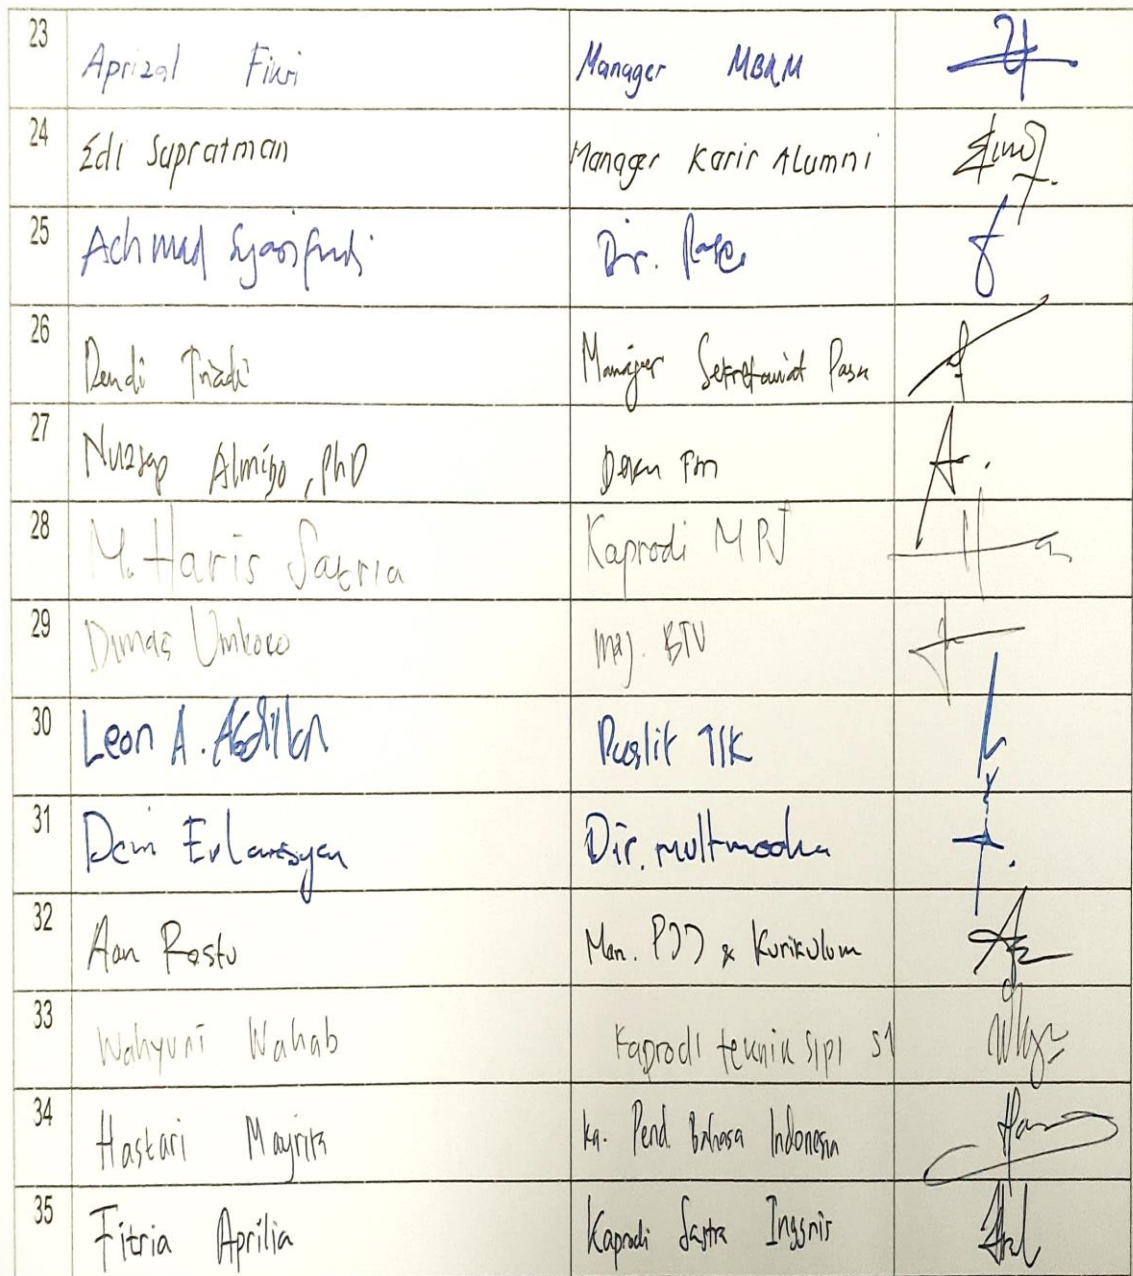 23 Aprizal Fikri Manager MBKM
24 Edi Supratman Manager Karir Alumni
25 Achmad Syarifudi Dir. Pasca
26 Dendi Triadi Manajer Sekretariat Pasca
27 Almigo, PhD Dekan
28 M. Haris Satria Kaprodi MPJ
29 Dimas maj. BTV
30 Leon A. Abdillah Puslit TIK
31 Deni Erlansyah Dir. multmedia
32 Aan Restu Man. PJJ & Kurikulum
33 Wahyuni Wahab Kaprodi teknik sipl S1
34 Hastari Mayrita Ka. Pend. Bahasa Indonesia
35 Fitria Aprilia Kaprodi Sastra Inggris